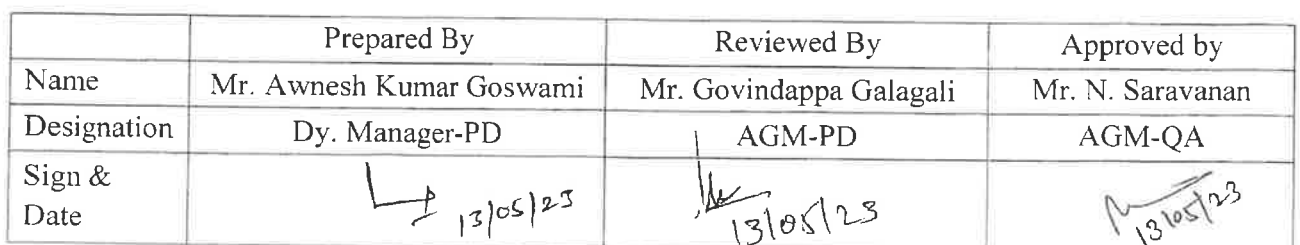 Prepared By Reviewed By Approved by
Name Mr. Awnesh Kumar Goswami Mr. Govindappa Galagali Mr. N. Saravanan
Designation Dy. Manager-PD AGM-PD AGM-QA
Sign &
Date 13/05/23 13/05/23 13/05/23